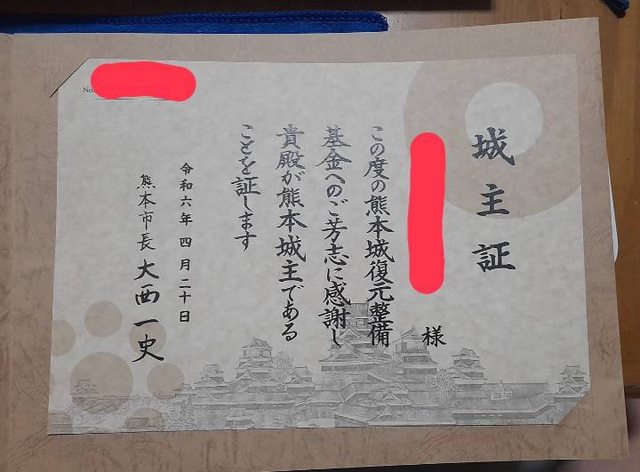 No.
城主証
様
この度の熊本城復元整備
基金へのご芳志に感謝し
貴殿が熊本城主である
ことを証します
令和六年四月二十日
熊本市長 大西一史